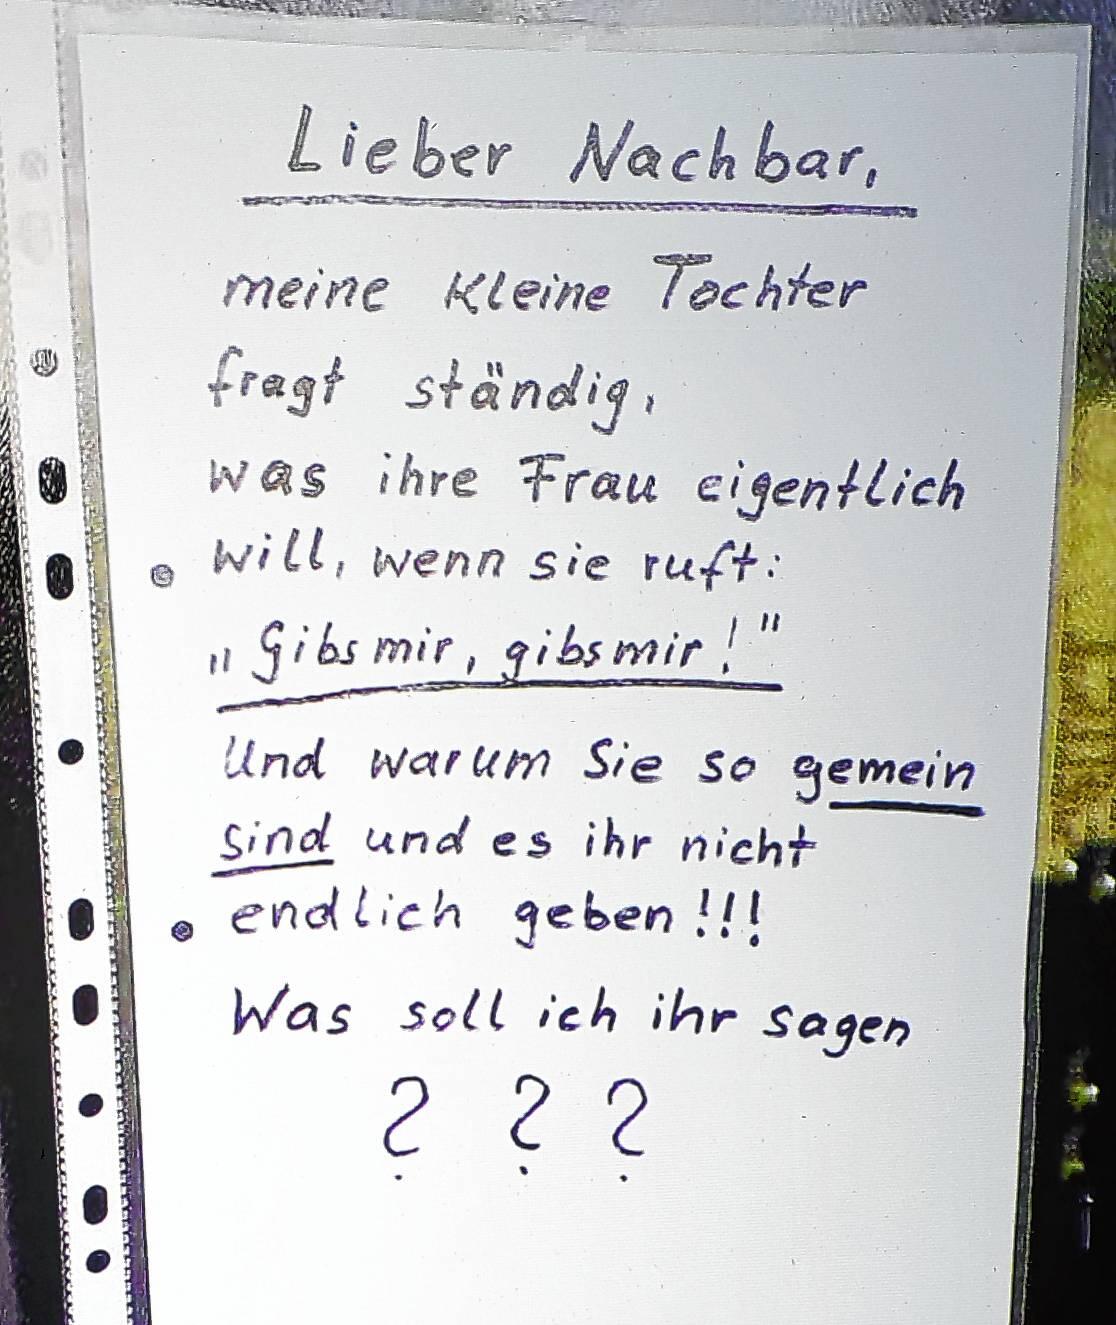 Lieber Nachbar,
meine kleine Tochter
fragt ständig,
was ihre Frau eigentlich
will, wenn sie ruft:
„Gibs mir, gibs mir!"
Und warum Sie so gemein
sind und es ihr nicht
endlich geben!!!
Was soll ich ihr sagen
? ? ?